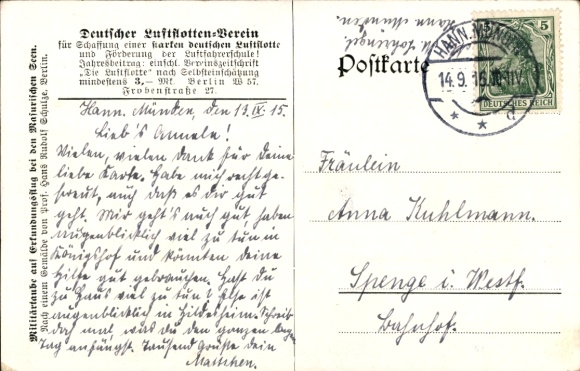 Militärtaube auf Erkundungsflug bei den Masurischen Seen.
Nach einem Gemälde von Prof. Hans Rudolf Schulze, Berlin.
Deutscher Luftflotten-Verein
für Schaffung einer starken deutschen Luftflotte
und Förderung der Luftfahrerschule!
Jahresbeitrag: einschl. Vereinszeitschrift
"Die Luftflotte" nach Selbsteinschätzung
mindestens 3,— Mk. Berlin W 57.
Frobenstraße 27.
Hann. Münden, den 13. IX. 15.
Lieb's Annele!
Vielen, vielen Dank für Deine
liebe Karte. Habe mich recht ge-
freut, auch daß es dir gut
geht. Mir geht's auch gut, haben
augenblicklich viel zu tun in
Königshof und könnten deine
Hilfe gut gebrauchen. Hast du
zu Haus viel zu tun? Else ist
augenblicklich in Hildesheim. Schreib
doch mal, was du den ganzen lieben
Tag anfängst. Tausend Grüße dein
Mattchen.
Hann. Münden.
Postkarte
HANN. MÜNDEN
14.9.15.10-11V.
d
5
DEUTSCHES REICH
Fräulein
Anna Kuhlmann.
Spenge i. Westf.
Bahnhof.